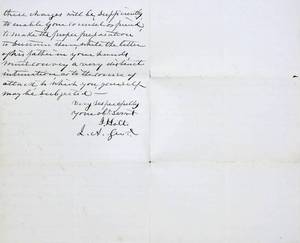 these charges will be sufficiently
to enable your counsel or friend
to make the proper preparation
to disprove them while the letter
of his father in your hands,
conveys a very distinct
intimation as to the course of
attack to which you yourself
may be subjected —
Very respectfully
your obt servt
J Holt
J. A. Genl